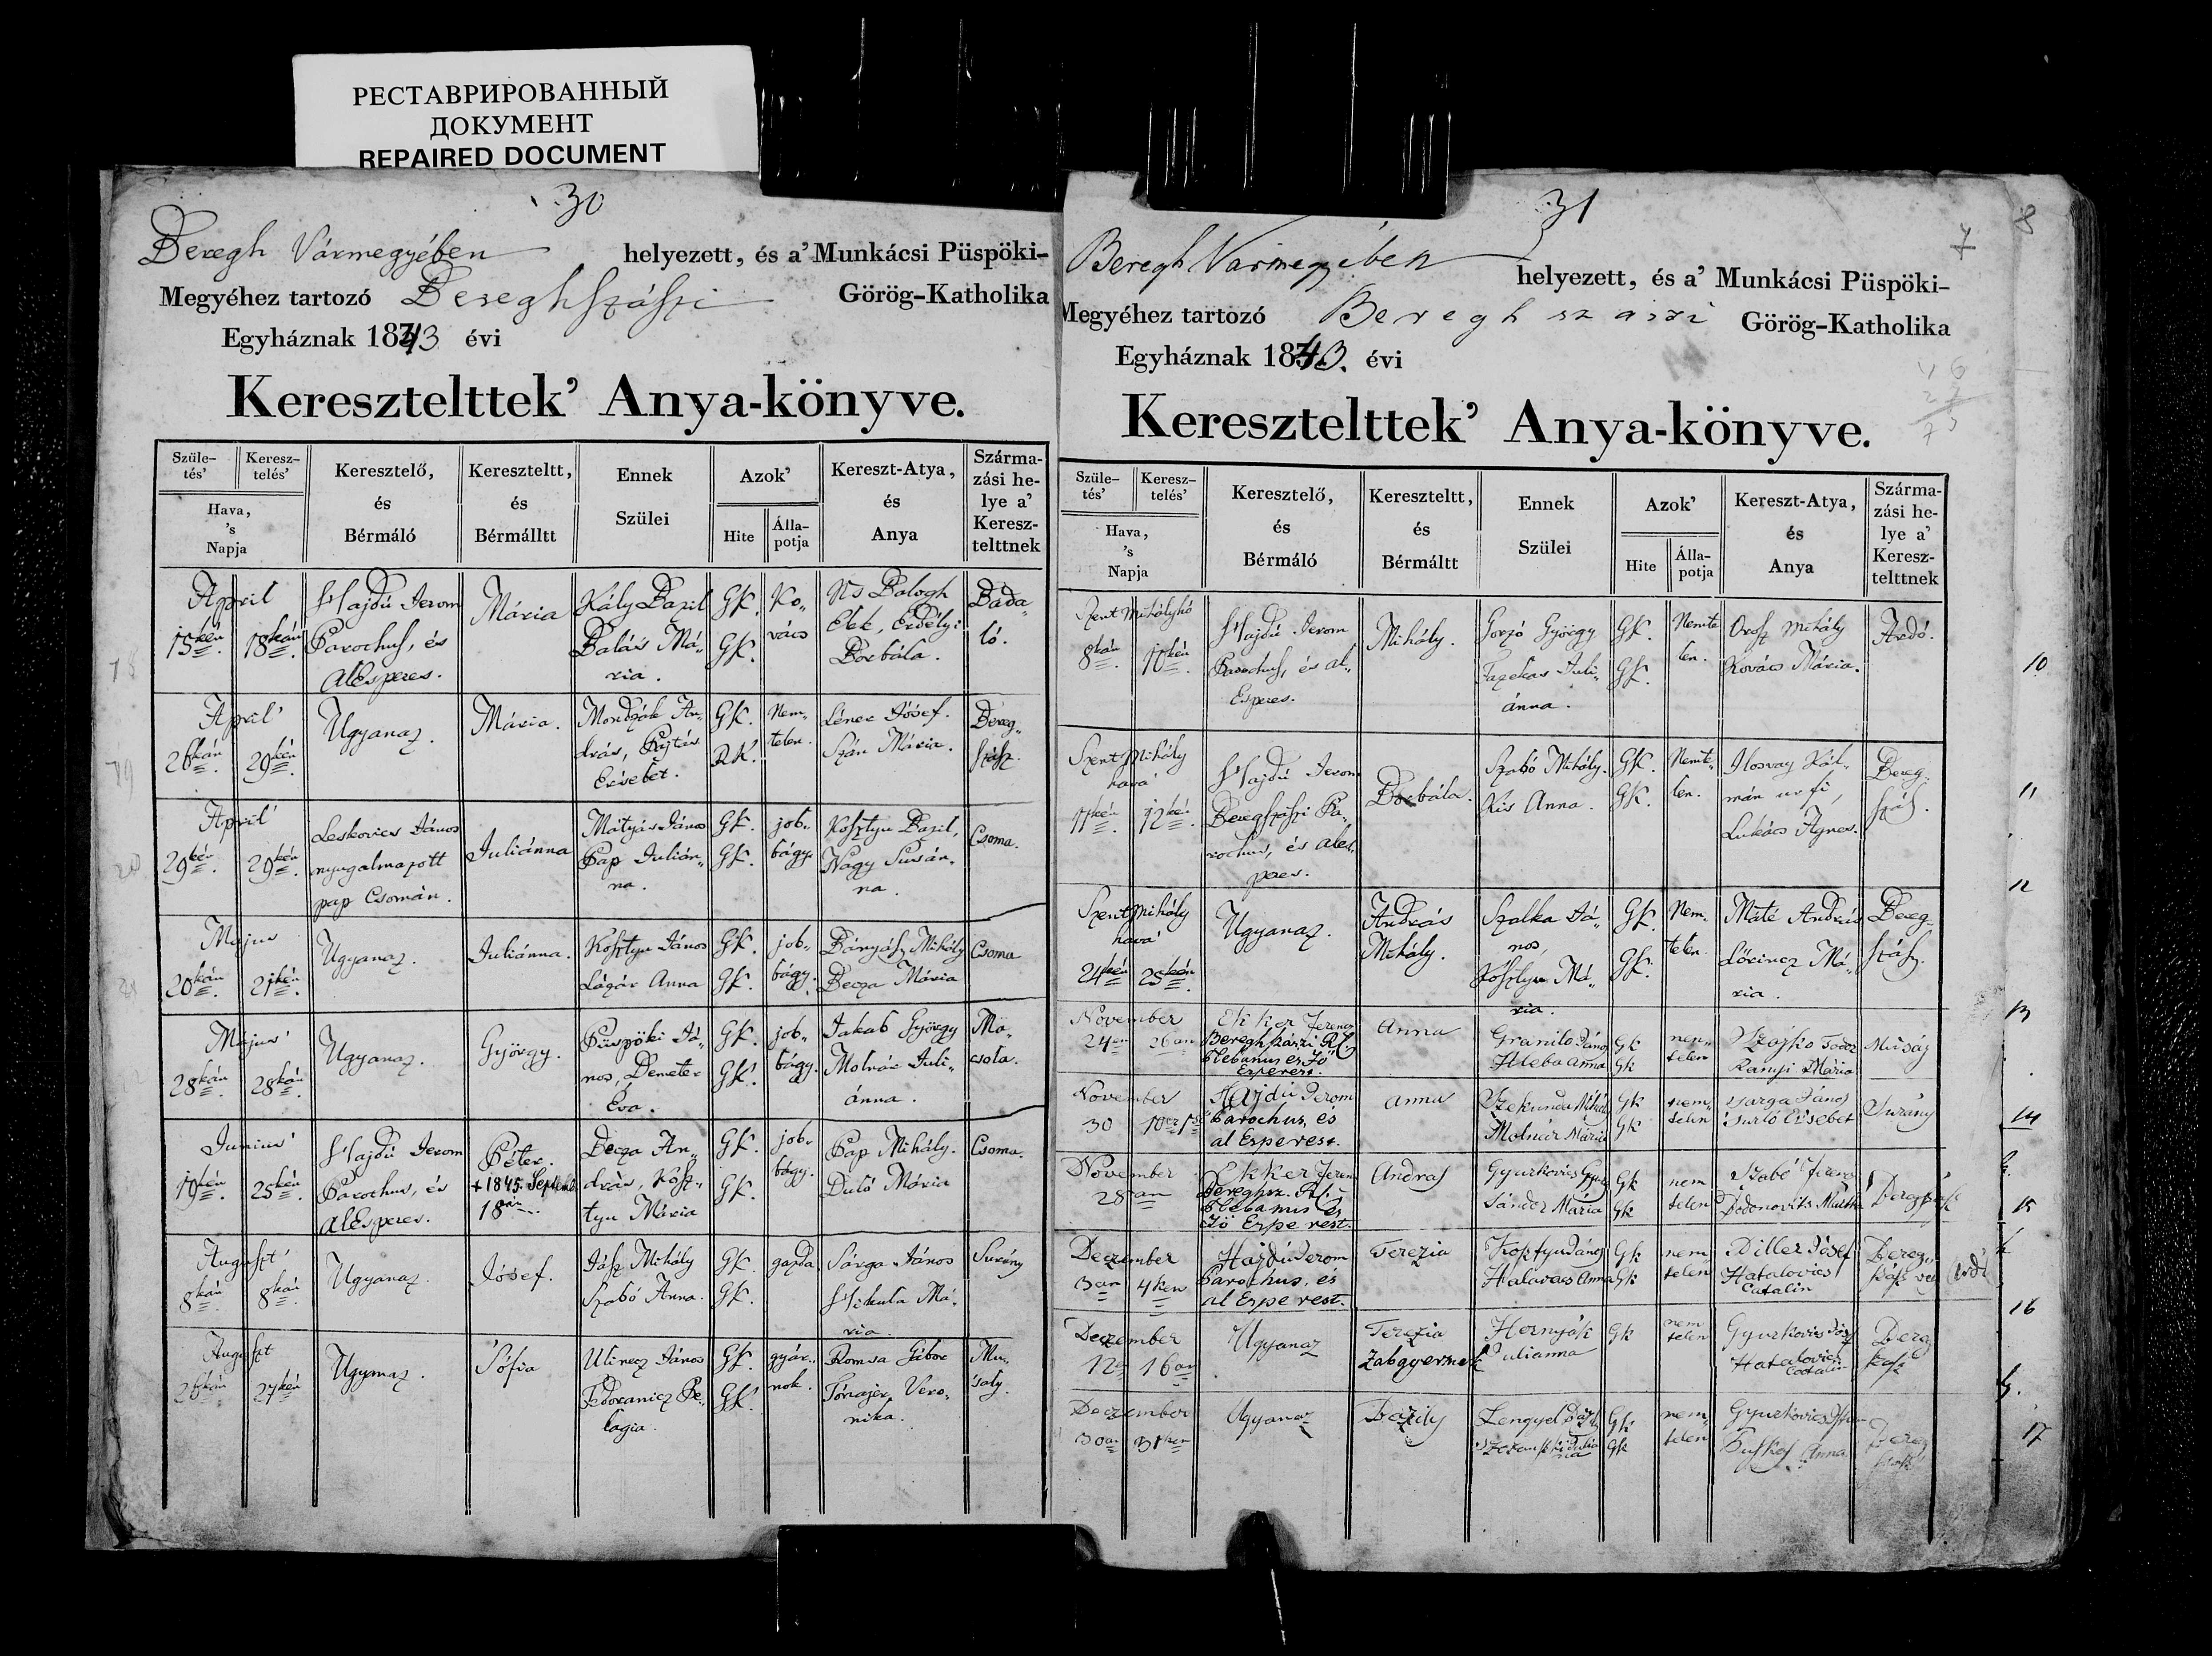 РЕСТАВРИРОВАННЫЙ
ДОКУМЕНТ
REPAIRED DOCUMENT
30
Beregh Vármegyében helyezett, és a' Munkácsi Püspöki-
Megyéhez tartozó Bereghszászi Görög-Katholika
Egyháznak 1843 évi
Keresztelttek' Anya-könyve.
Szüle-tés' Keresz-telés' Hava, 's Napja
Keresztelő, és Bérmáló
Kereszteltt, és Bérmálltt
Ennek Szülei
Azok' Hite Álla-potja
Kereszt-Atya, és Anya
Szárma-zási he-lye a' Keresz-telttnek
April 15kén 18kán Hajdú Jerom Parochus, és AlEsperes. Mária Kály Bazil Balás Má-ria. GK. GK. Ko-vács Ns Balogh Elek, Erdélyi Borbála. Bada-ló.
April 26kán 29kén Ugyanaz. Mária. Mondzák An-drás, Pajtás Ersébet. GK. RK. Nem-telen. Léner Jósef. Szán Mária. Bereg-szász.
April 29kén 29kén Leskovics János nyugalmazott pap Csomán. Juliánna Mátyás János Pap Julián-na. GK. GK. job-bágy. Kosztyu Bazil, Nagy Susán-na. Csoma.
Majus 20kán 21kén Ugyanaz. Juliánna. Kosztyu János Lázár Anna GK. GK. job-bágy. Bányász Mihály Decza Mária Csoma
Május 28kán 28kán Ugyanaz. György. Püspöki Já-nos, Demeter Éva. GK. GK. job-bágy. Jakab György Molnár Juli-ánna. Ma-csola.
Junius 19kén 25kén Hajdú Jerom Parochus, és AlEsperes. Péter. + 1845 Septemb 18án Decza An-drás, Kosz-tyu Mária GK. GK. job-bágy. Pap Mihály. Duló Mária Csoma.
August 8kán 8kán Ugyanaz. Jósef. Jász Mihály Szabó Anna. GK. GK. gazda Sárga János Mikula Má-ria. Surány
August 26kán 27kén Ugyanaz. Sófia Ulinecz János Fedoranicz Pe-lagia. GK. GK. gyár-nok. Romsa Gábor Vero-nika. Mu-'saly.
31 7 8
Beregh Varmegyében helyezett, és a' Munkácsi Püspöki-
Megyéhez tartozó Bereghszaszi Görög-Katholika
Egyháznak 1843. évi
Keresztelttek' Anya-könyve.
Szüle-tés' Keresz-telés' Hava, 's Napja
Keresztelő, és Bérmáló
Kereszteltt, és Bérmáltt
Ennek Szülei
Azok' Hite Álla-potja
Kereszt-Atya, és Anya
Szárma-zási he-lye a' Keresz-telttnek
Szent Mihályhó 8kán 10kén Hajdú Jerom Parochus, és al-Esperes. Mihály. Gorzó György Fazekas Juli-ánna. GK. GK. Nemte-len. Orosz Mihály Kovács Mária. Ardó. 10
Szent Mihály hava' 11kén 12kén Hajdú Jerom Beregszászi Pa-rochus, és ales-peres. Borbála. Szabó Mihály. Kis Anna. GK. GK. Nemte-len. Ilosvay Kál-mán urfi, Lukács Ágnes. Bereg-szász. 11
Szent Mihály hava' 24kén 25kén Ugyanaz. András Mihály. Szalka Já-nos, Kosztyu Má-ria. GK. GK. Nem-telen. Máté András Lőrincz Má-ria. Bereg-szász. 12
November 24en 26an Ekker Ferencz Bereghszászi R. K. Plebanus és Fő Esperest. Anna Granilo János Hleba Anna Gk Gk nem-telen Todor Ranyi Mária Musaj 13
November 30 10er 1ső Hajdú Jerom Parochus, és al Esperest. Anna Szekunda Molnár Mária Gk Gk nem-telen Varga János Ersebet Surány 14
November 28an Ekker Feren Bereghsz. R. K. Plebanus és Fő Esperest. András Gyurkovics Sándor Mária Gk Gk nem telen Szabó Dodonovits Beregszász 15
Deczember 3an 4ken Hajdú Jerom Parochus, és al Esperest. Terezia Kosztyu János Halavacs Anna Gk Gk nem telen Diller Jósef Hatalovics Catalin Bereg-szász 16
Deczember 12en 16an Ugyanaz Terezia Zabgyermek Hornyák Julianna Gk nem telen Gyurkovics Hatalovics Catalin Bereg szász
Deczember 30an 31ken Ugyanaz Bazily Lengyel Gk Gk nem-telen Gyurkovics Puskás Anna Bereg szász 17